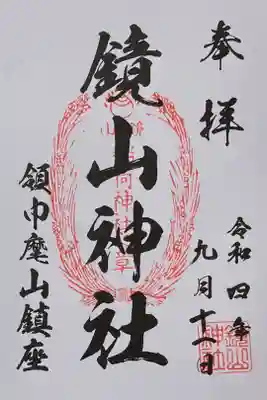 奉拝
鏡山神社
領巾麾山鎮座
令和四年
九月十一日